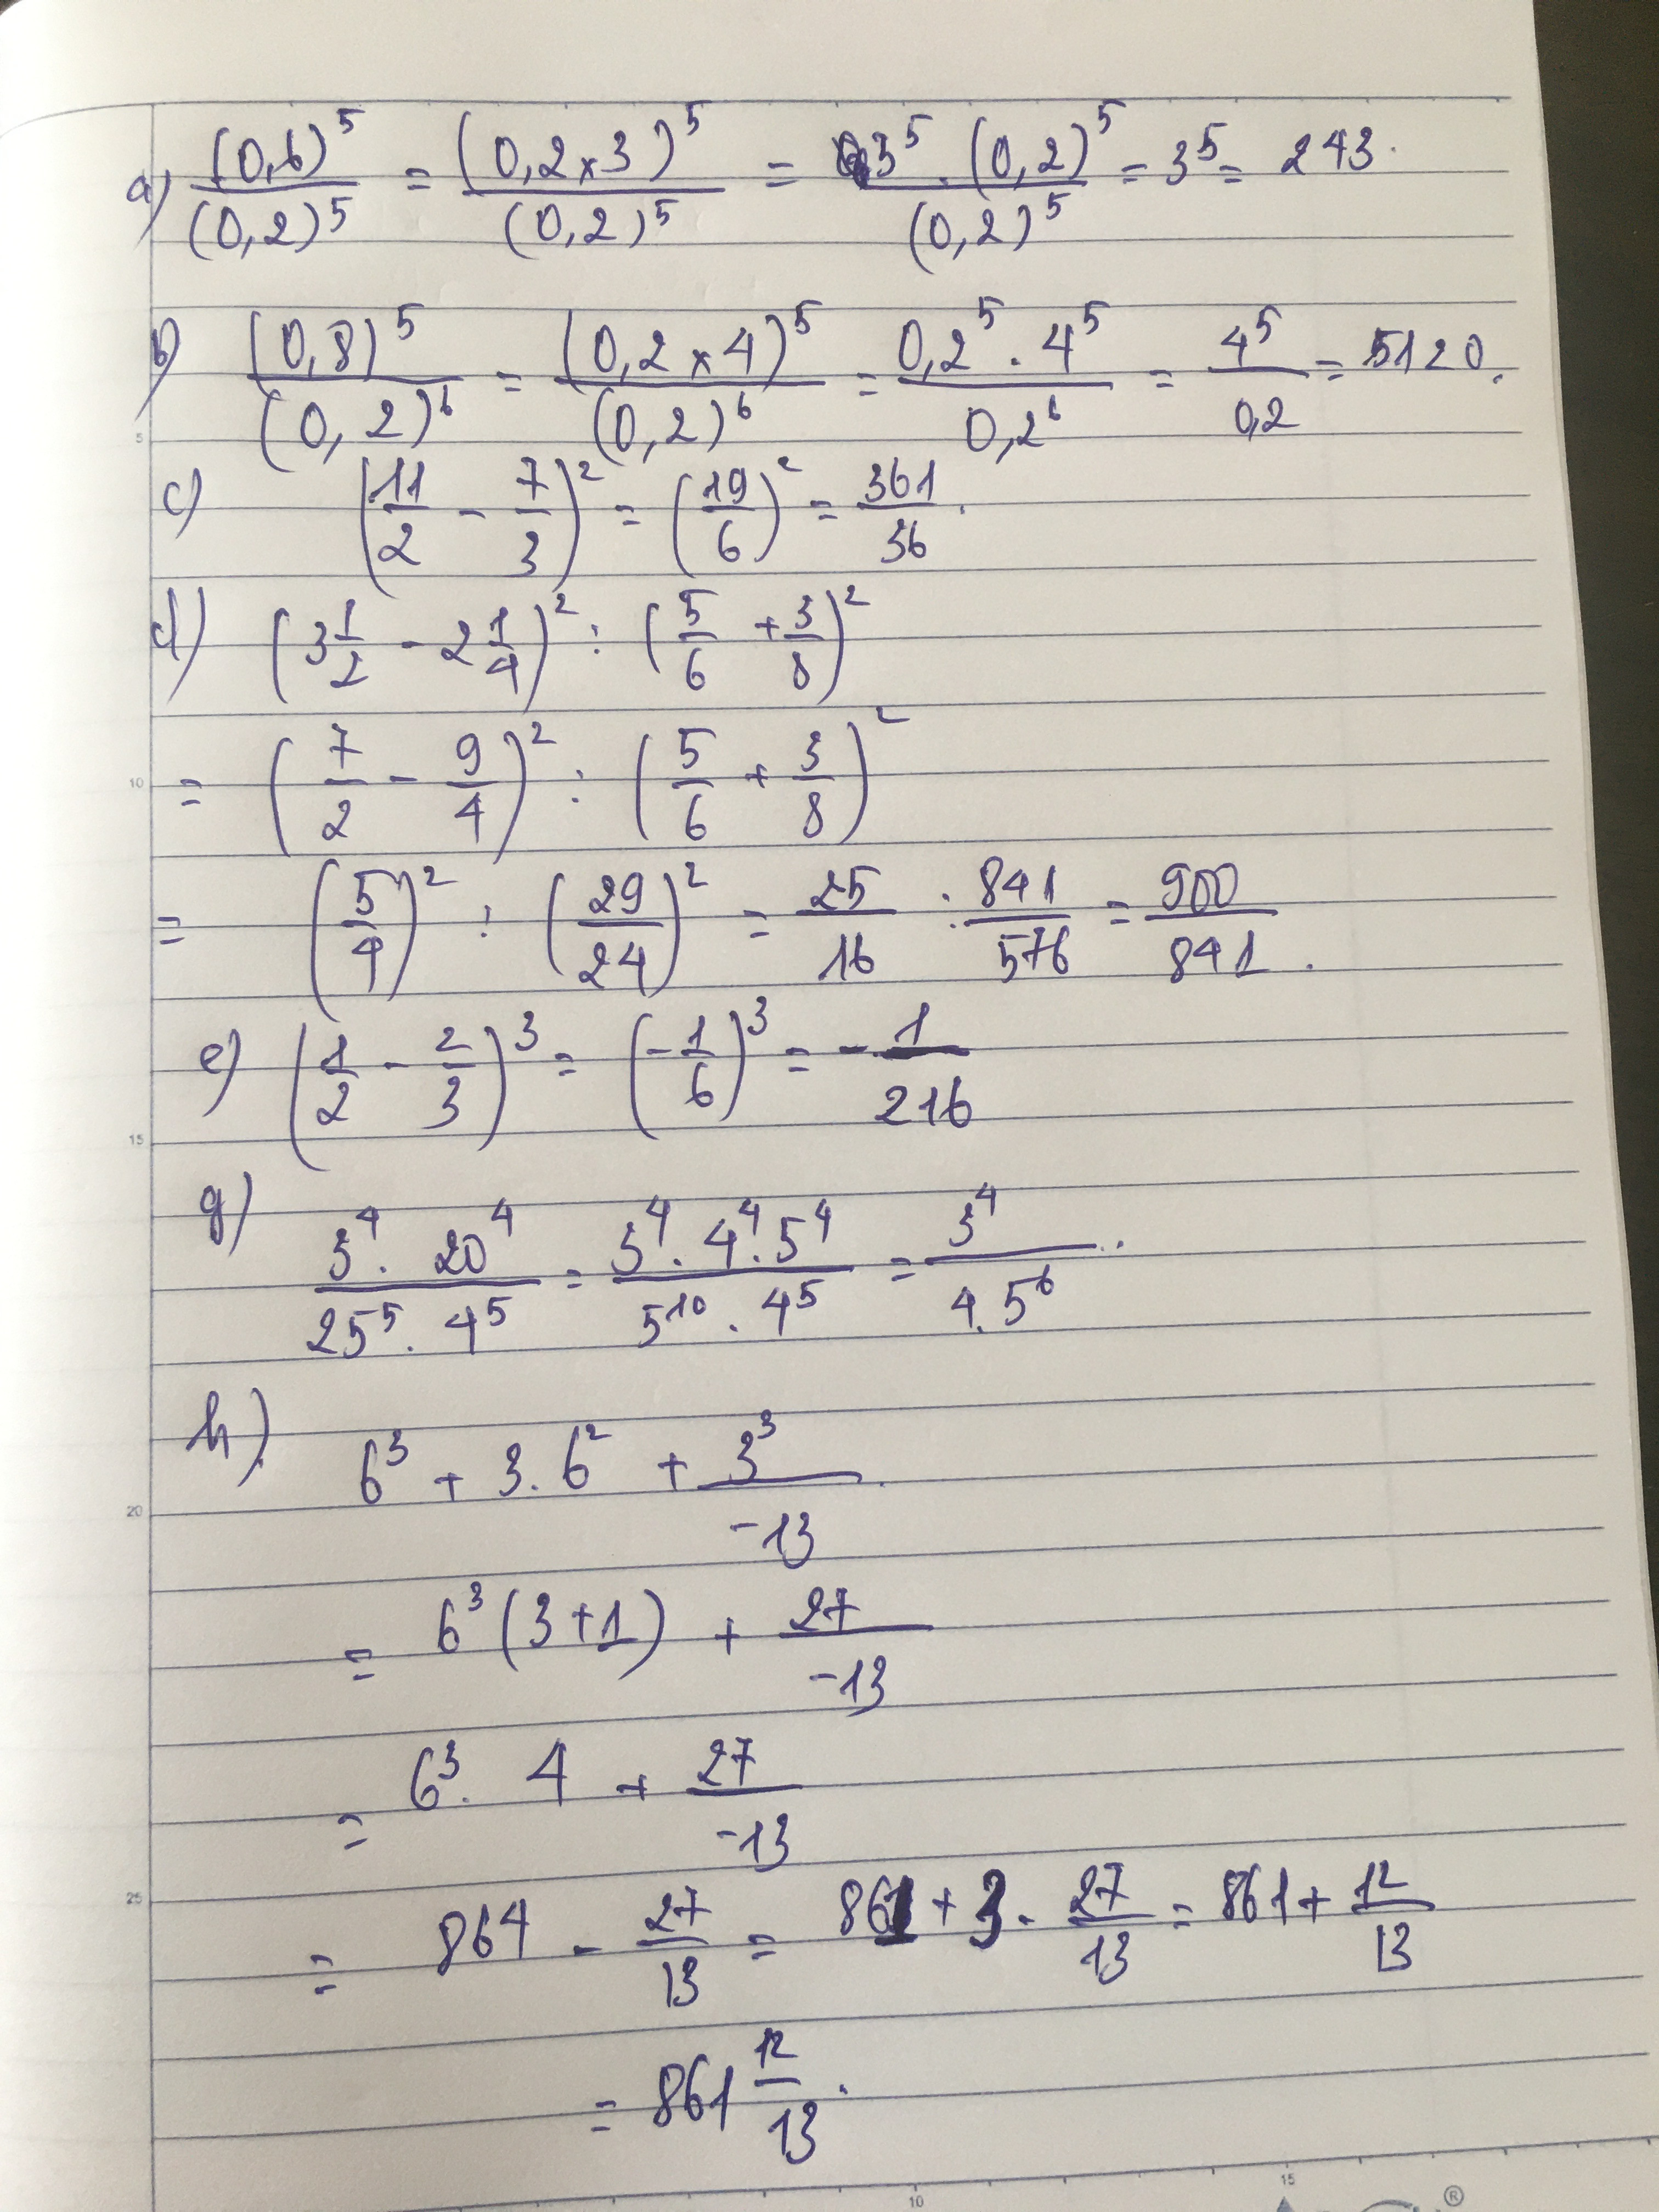 a) (0,6)^5/(0,2)^5 = (0,2 x 3)^5/(0,2)^5 = 3^5 . (0,2)^5/(0,2)^5 = 3^5 = 243.
b) (0,8)^5/(0,2)^6 = (0,2 x 4)^5/(0,2)^6 = 0,2^5 . 4^5/0,2^6 = 4^5/0,2 = 5120.
c) (11/2 - 7/3)^2 = (19/6)^2 = 361/36.
d) (3 1/2 - 2 1/4)^2 : (5/6 + 3/8)^2
= (7/2 - 9/4)^2 : (5/6 + 3/8)^2
= (5/4)^2 : (29/24)^2 = 25/16 : 841/576 = 900/841.
e) (1/2 - 2/3)^3 = (-1/6)^3 = -1/216
g) 3^4 . 20^4/25^5 . 4^5 = 3^4 . 4^4 . 5^4/5^10 . 4^5 = 3^4/4.5^6 ..
h) 6^3 + 3.6^2 + 3^3/-13.
= 6^3 (3+1) + 27/-13
= 6^3 . 4 + 27/-13
= 864 - 27/13 = 861 + 3 - 27/13 = 861 + 12/13
= 861 12/13.
5
10
15
20
25
10
15
®